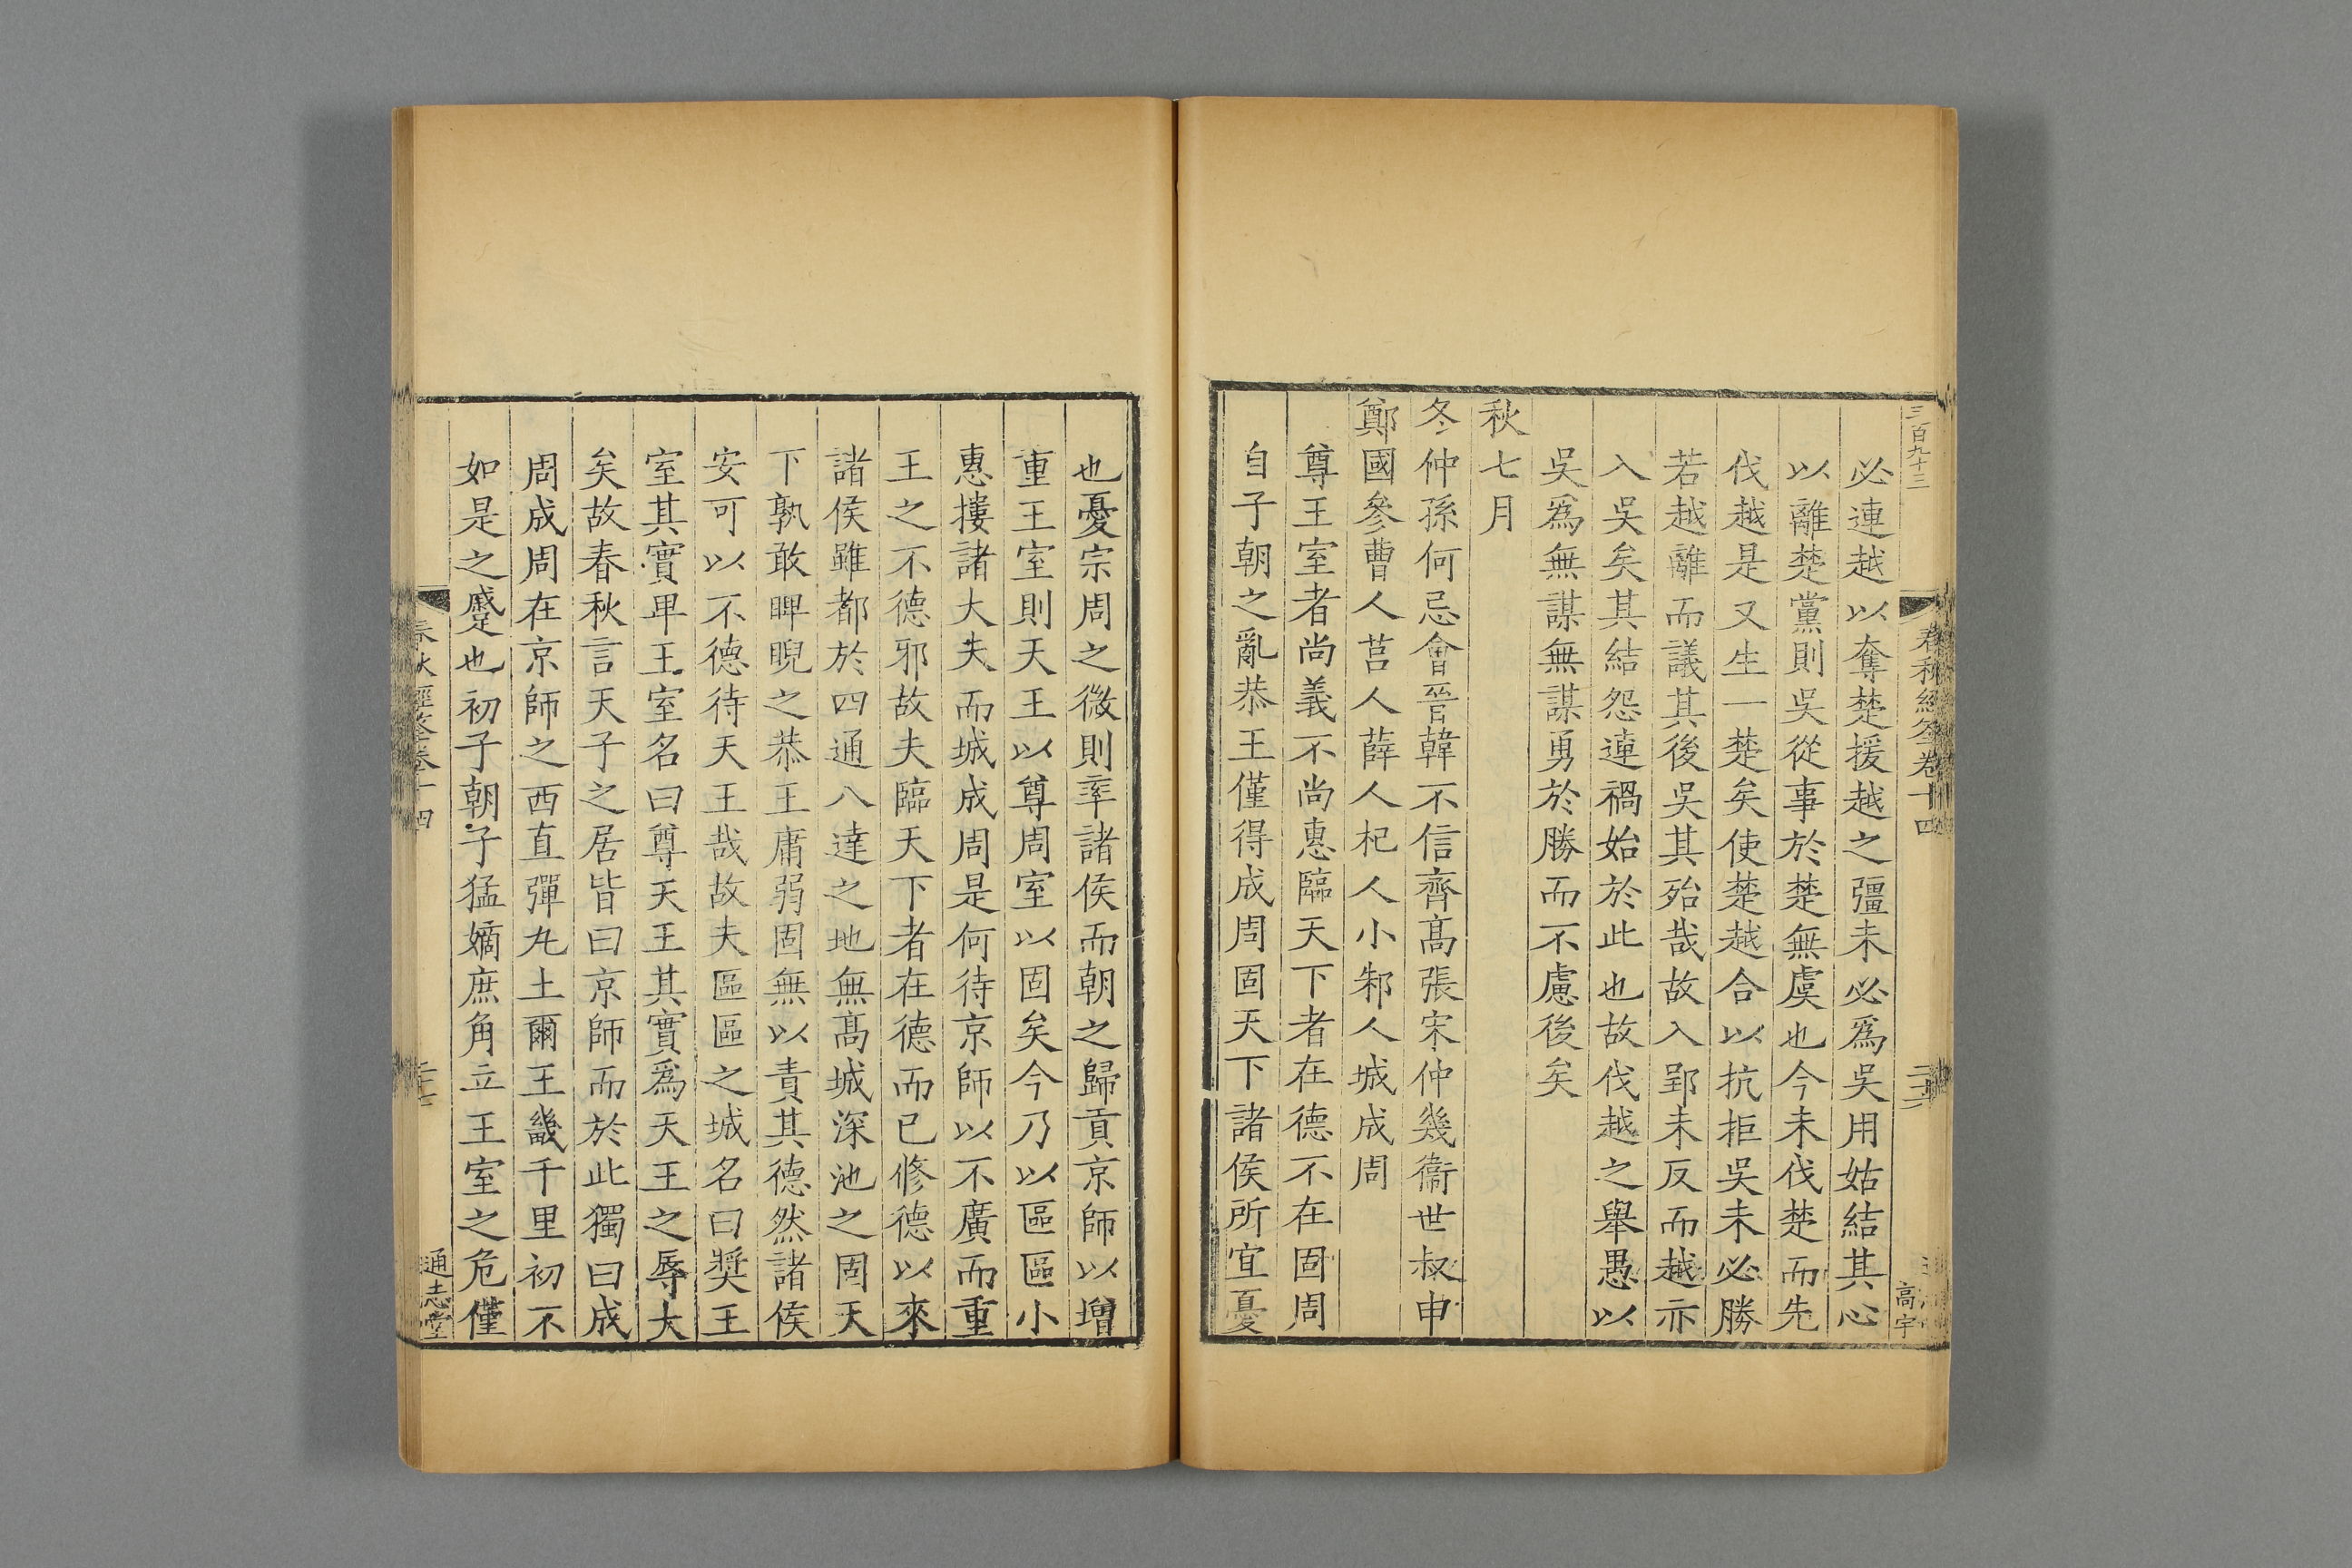 三百九十三
必連越以奪楚援越之彊未必爲吳用姑結其心
以離楚黨則吳從事於楚無虞也今未伐楚而先
伐越是又生一楚矣使楚越合以抗拒吳未必勝
若越離而議其後吳其殆哉故入郢未反而越亦
入吳矣其結怨連禍始於此也故伐越之舉愚以
吳爲無謀無謀勇於勝而不慮後矣
秋七月
冬仲孫何忌會晉韓不信齊高張宋仲幾衞世叔申
鄭國參曹人莒人薛人杞人小邾人城成周
尊王室者尚義不尚惠臨天下者在德不在固周
自子朝之亂恭王僅得成周固天下諸侯所宜憂
也憂宗周之微則率諸侯而朝之歸貢京師以增
重王室則天王以尊周室以固矣今乃以區區小
惠摟諸大夫而城成周是何待京師以不廣而重
王之不德邪故夫臨天下者在德而已修德以來
諸侯雖都於四通八達之地無高城深池之固天
下孰敢睥睨之恭王庸弱固無以責其德然諸侯
安可以不德待天王哉故夫區區之城名曰奬王
室其實卑王室名曰尊天王其實爲天王之辱大
矣故春秋言天子之居皆曰京師而於此獨曰成
周成周在京師之西直彈丸土爾王畿千里初不
如是之蹙也初子朝子猛嫡庶角立王室之危僅
春秋經筌卷十四
通志堂
高宇